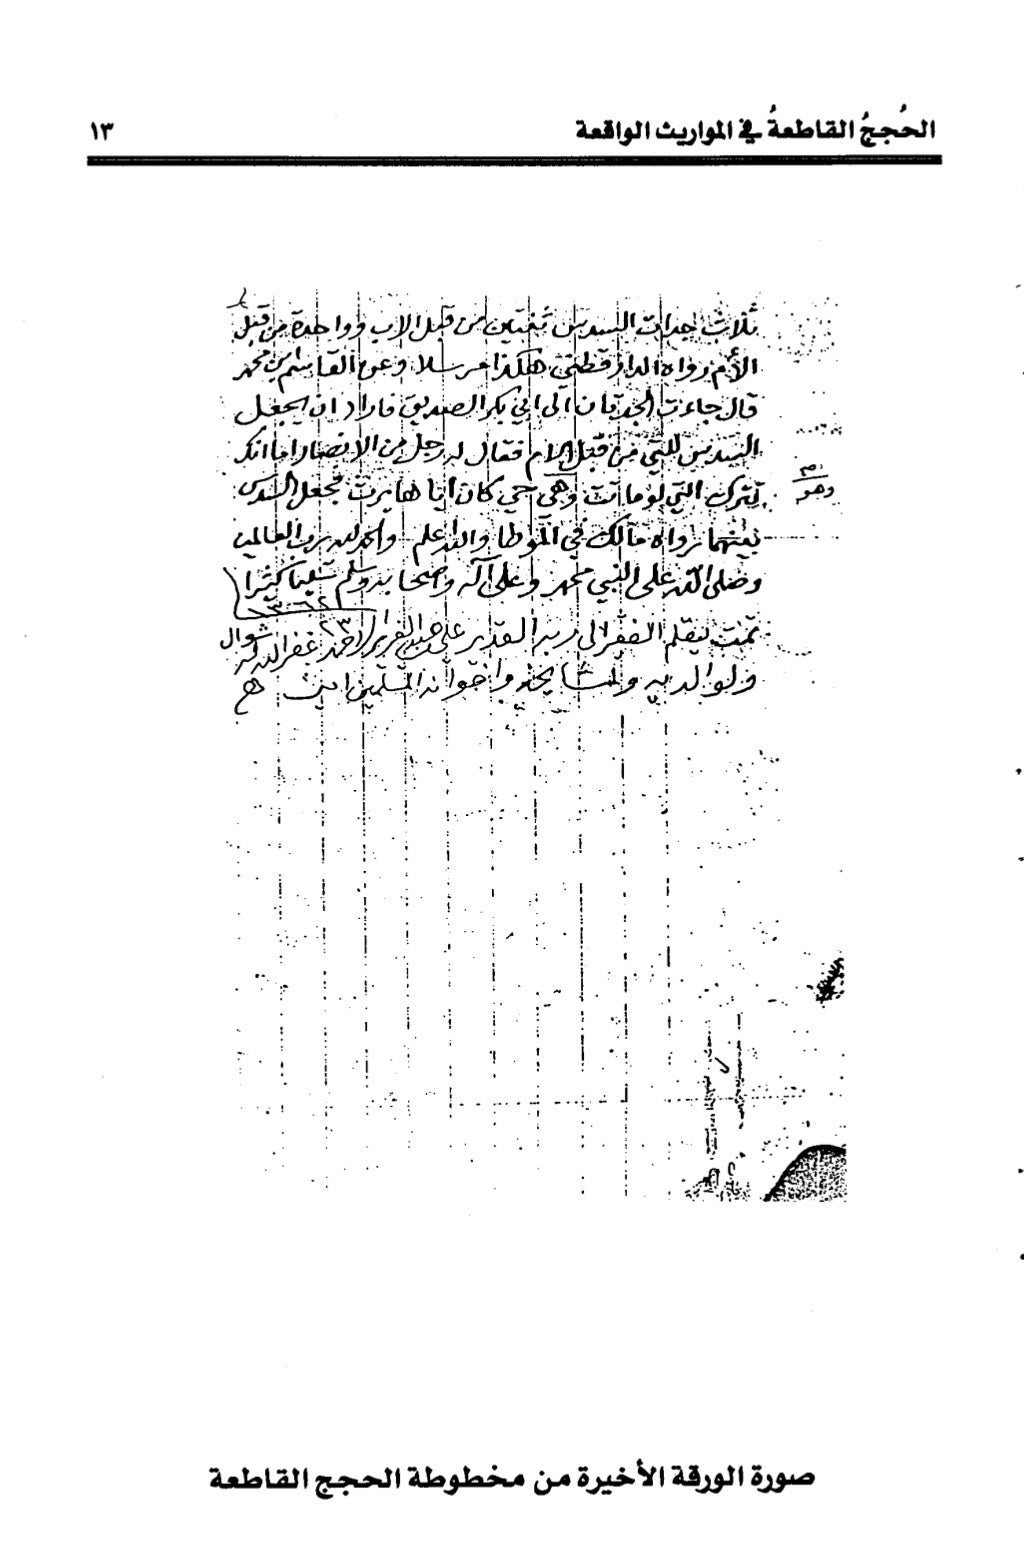 الحُججُ القاطعةُ في المواريث الواقعة
١٣
ثلاث جدات السدس ثنتين من قبل الاب وواحدة من قبل
الأم رواه الدارقطني هكذا مرسلا وعن القاسم بن محمد
قال جاءت الجدتان الى ابي بكر الصديق فاراد ان يجعل
السدس للتي من قبل الام فقال له رجل من الانصار اما انك
تترك التي لو ماتت وهي حي كان اياها يرث فجعل السدس
وهو
بينهما رواه مالك في الموطا والله اعلم والحمد لله رب العالمين
وصلى الله على النبي محمد وعلى آله واصحابه وسلم تسليما كثيرا
تمت بقلم الفقير الى ربه القدير علي بن احمد غفر الله له
شوال
ولوالديه ولمشايخه واخوانه المسلمين امين
صورة الورقة الأخيرة من مخطوطة الحجج القاطعة